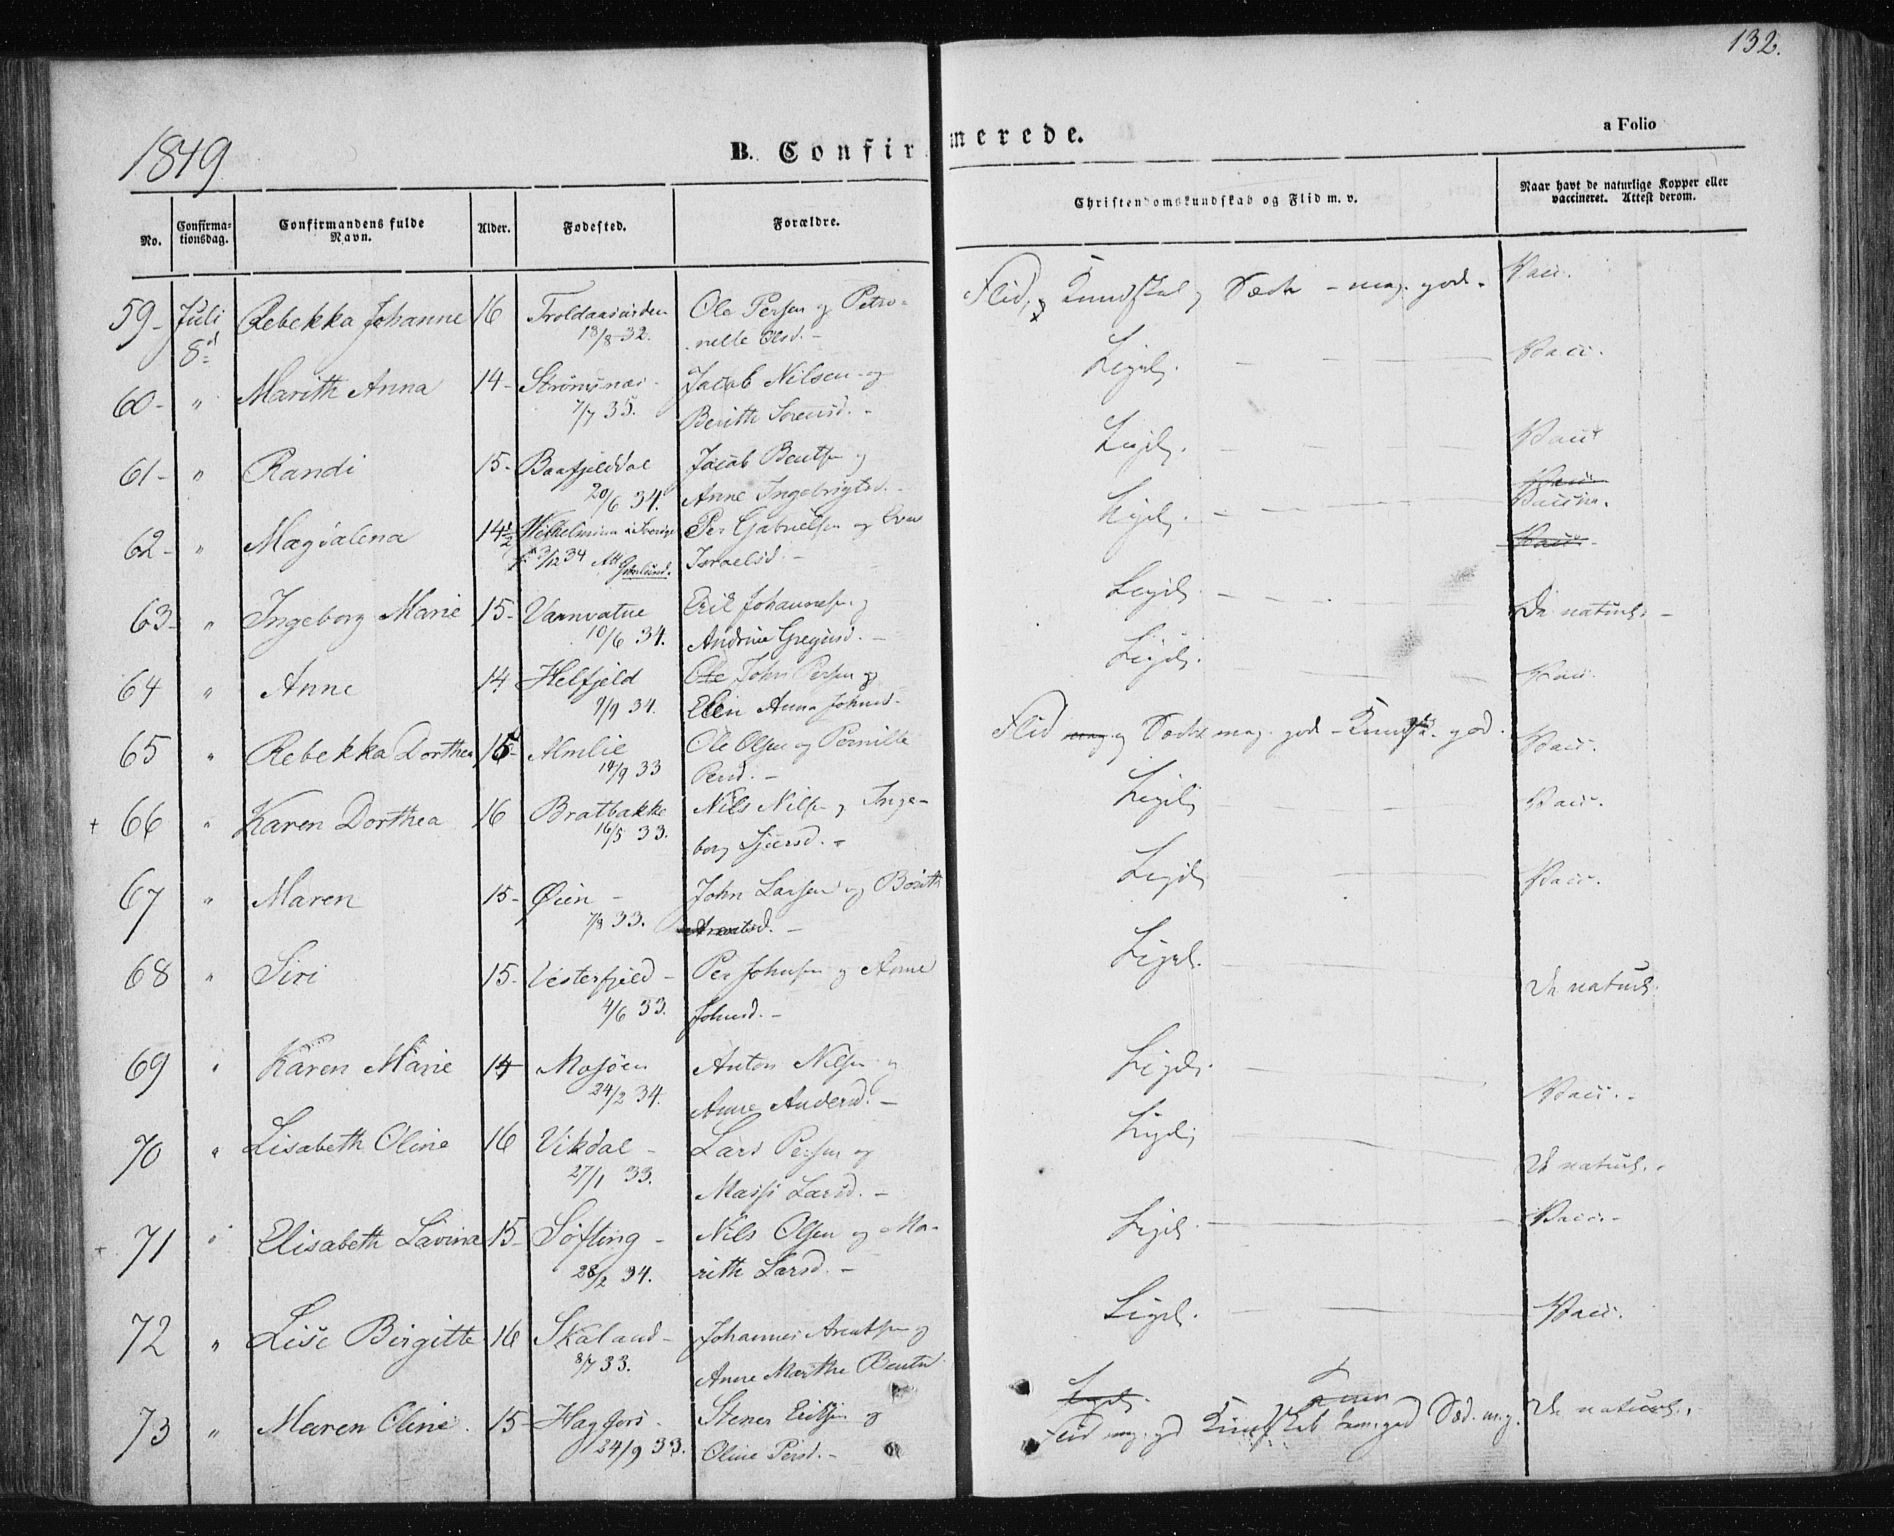 132.
1849
B. Confirmerede.
a Folio
No.
Confirma-
tionsdag.
Confirmandens fulde
Navn.
Alder.
Fødested.
Forældre.
Christendomskundskab og Flid m. v.
Naar havt de naturlige Kopper eller
vaccineret. Attest derom.
59- Juli Rebekka Johanne 16 Ole Persen og Petro- Flid, Kundskab, Sæder - meg. god. Vacc.
8d 18/8 32. nelle Olsd.-
60- " Marith Anna 14- Strømsnæs- Jacob Nilsen og Ligel. Vacc.
7/7 35. Berith Sørensd.-
61- " Randi 15- Baafjelddal Jacob Bentsen og Ligel. Vacc.
20/6 34. Anne Ingebrigtsd.- Vacc.
62- " Magdalena 14 1/2 Wilhelmina i Sverige Per Gabrielsen og Eva Ligel. Vaccin.
3/12 34 Att Israelsd.- Vacc.
63- " Ingeborg Marie 15- Vaanvatne Erik Johannesen og Ligel. De naturl.-
10/6 34. Andrine Gregusd.-
64 " Anne 14 Helfjeld Ole John Persen og Ligel. Vacc.
9/9 34. Elen Anna Johnsd.-
65 " Rebekka Dorthea 15 Almlie Ole Olsen og Pernille Flid meg og Sæder meg. god - Kundsk. god. Vacc.
14/9 33 Persd.-
+ 66 " Karen Dorthea 16 Bratbakke Nils Nilsen og Inge- Ligel. Vacc.
16/5 33. borg Sjursd.-
67 " Maren 15- Øien - John Larsen og Berith Ligel. Vacc.
7/8 33. Arentsd.-
68 " Siri 15- Vesterfjeld - Per Johnsen og Anne Ligel. De naturl.
4/6 33. Johnsd.-
69 " Karen Marie 14 Mosjøen Anton Nilsen og Ligel. Vacc.-
24/2 34. Anne Andersd.-
70 " Lisabeth Oline 16 Vikdal - Lars Persen og Ligel. De naturl.-
27/1 33. Marsi Larsd.-
+ 71 " Elisabeth Lavina 15- Søfting - Nils Olsen og Ma- Ligel. Vacc.-
28/2 34. rith Larsd.-
72 " Lise Birgitte 16 Skaland- Johannes Arentsen og Ligel. Vacc.
8/7 33. Anne Marthe Bentsd.
73 " Maren Oline. 15- Hagfors- Stener Eriksen og Ligel.
Flid meg. gd Kundskab god Sæd. m. g. De naturl.
24/9 33. Oline Persd.-